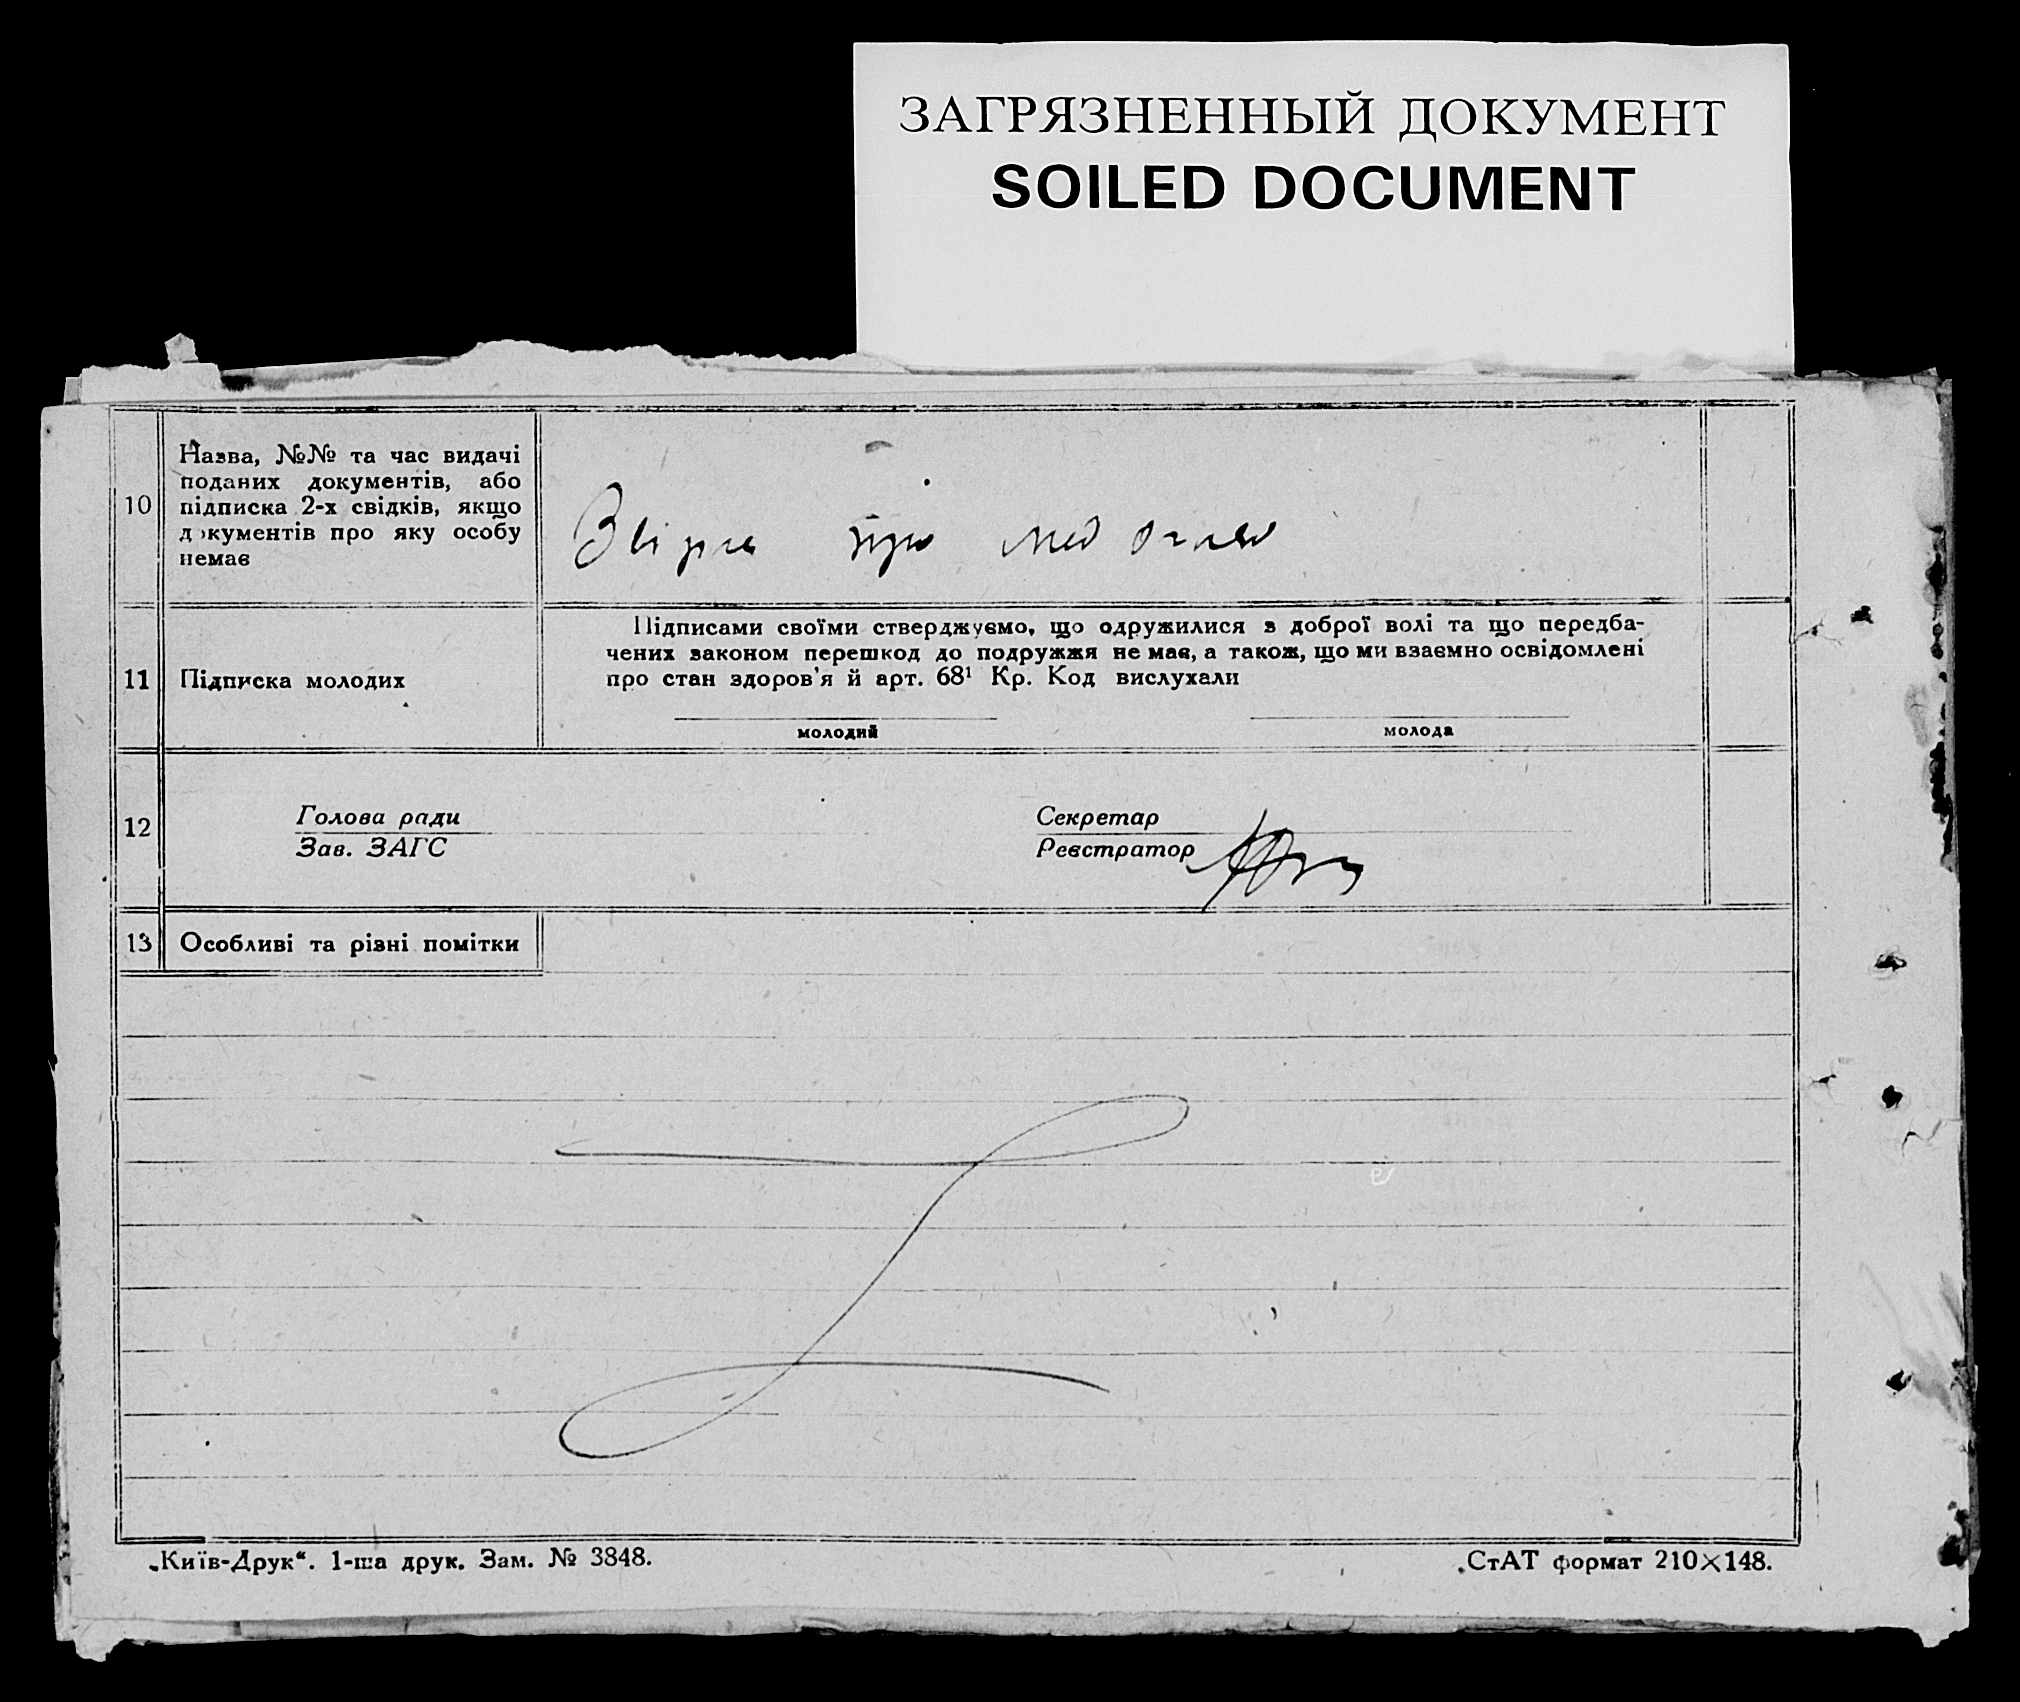 ЗАГРЯЗНЕННЫЙ ДОКУМЕНТ
SOILED DOCUMENT
10
Назва, №№ та час видачі
поданих документів, або
підписка 2-х свідків, якщо
документів про яку особу
немає
про мед огляд
11
Підписка молодих
Підписами своїми стверджуємо, що одружилися з доброї волі та що передба-
чених законом перешкод до подружжя не має, а також, що ми взаємно освідомлені
про стан здоров'я й арт. 68¹ Кр. Код вислухали
молодий
молода
12
Голова ради
Зав. ЗАГС
Секретар
Реєстратор
13
Особливі та різні помітки
„Київ-Друк“. 1-ша друк. Зам. № 3848.
СтАТ формат 210×148.